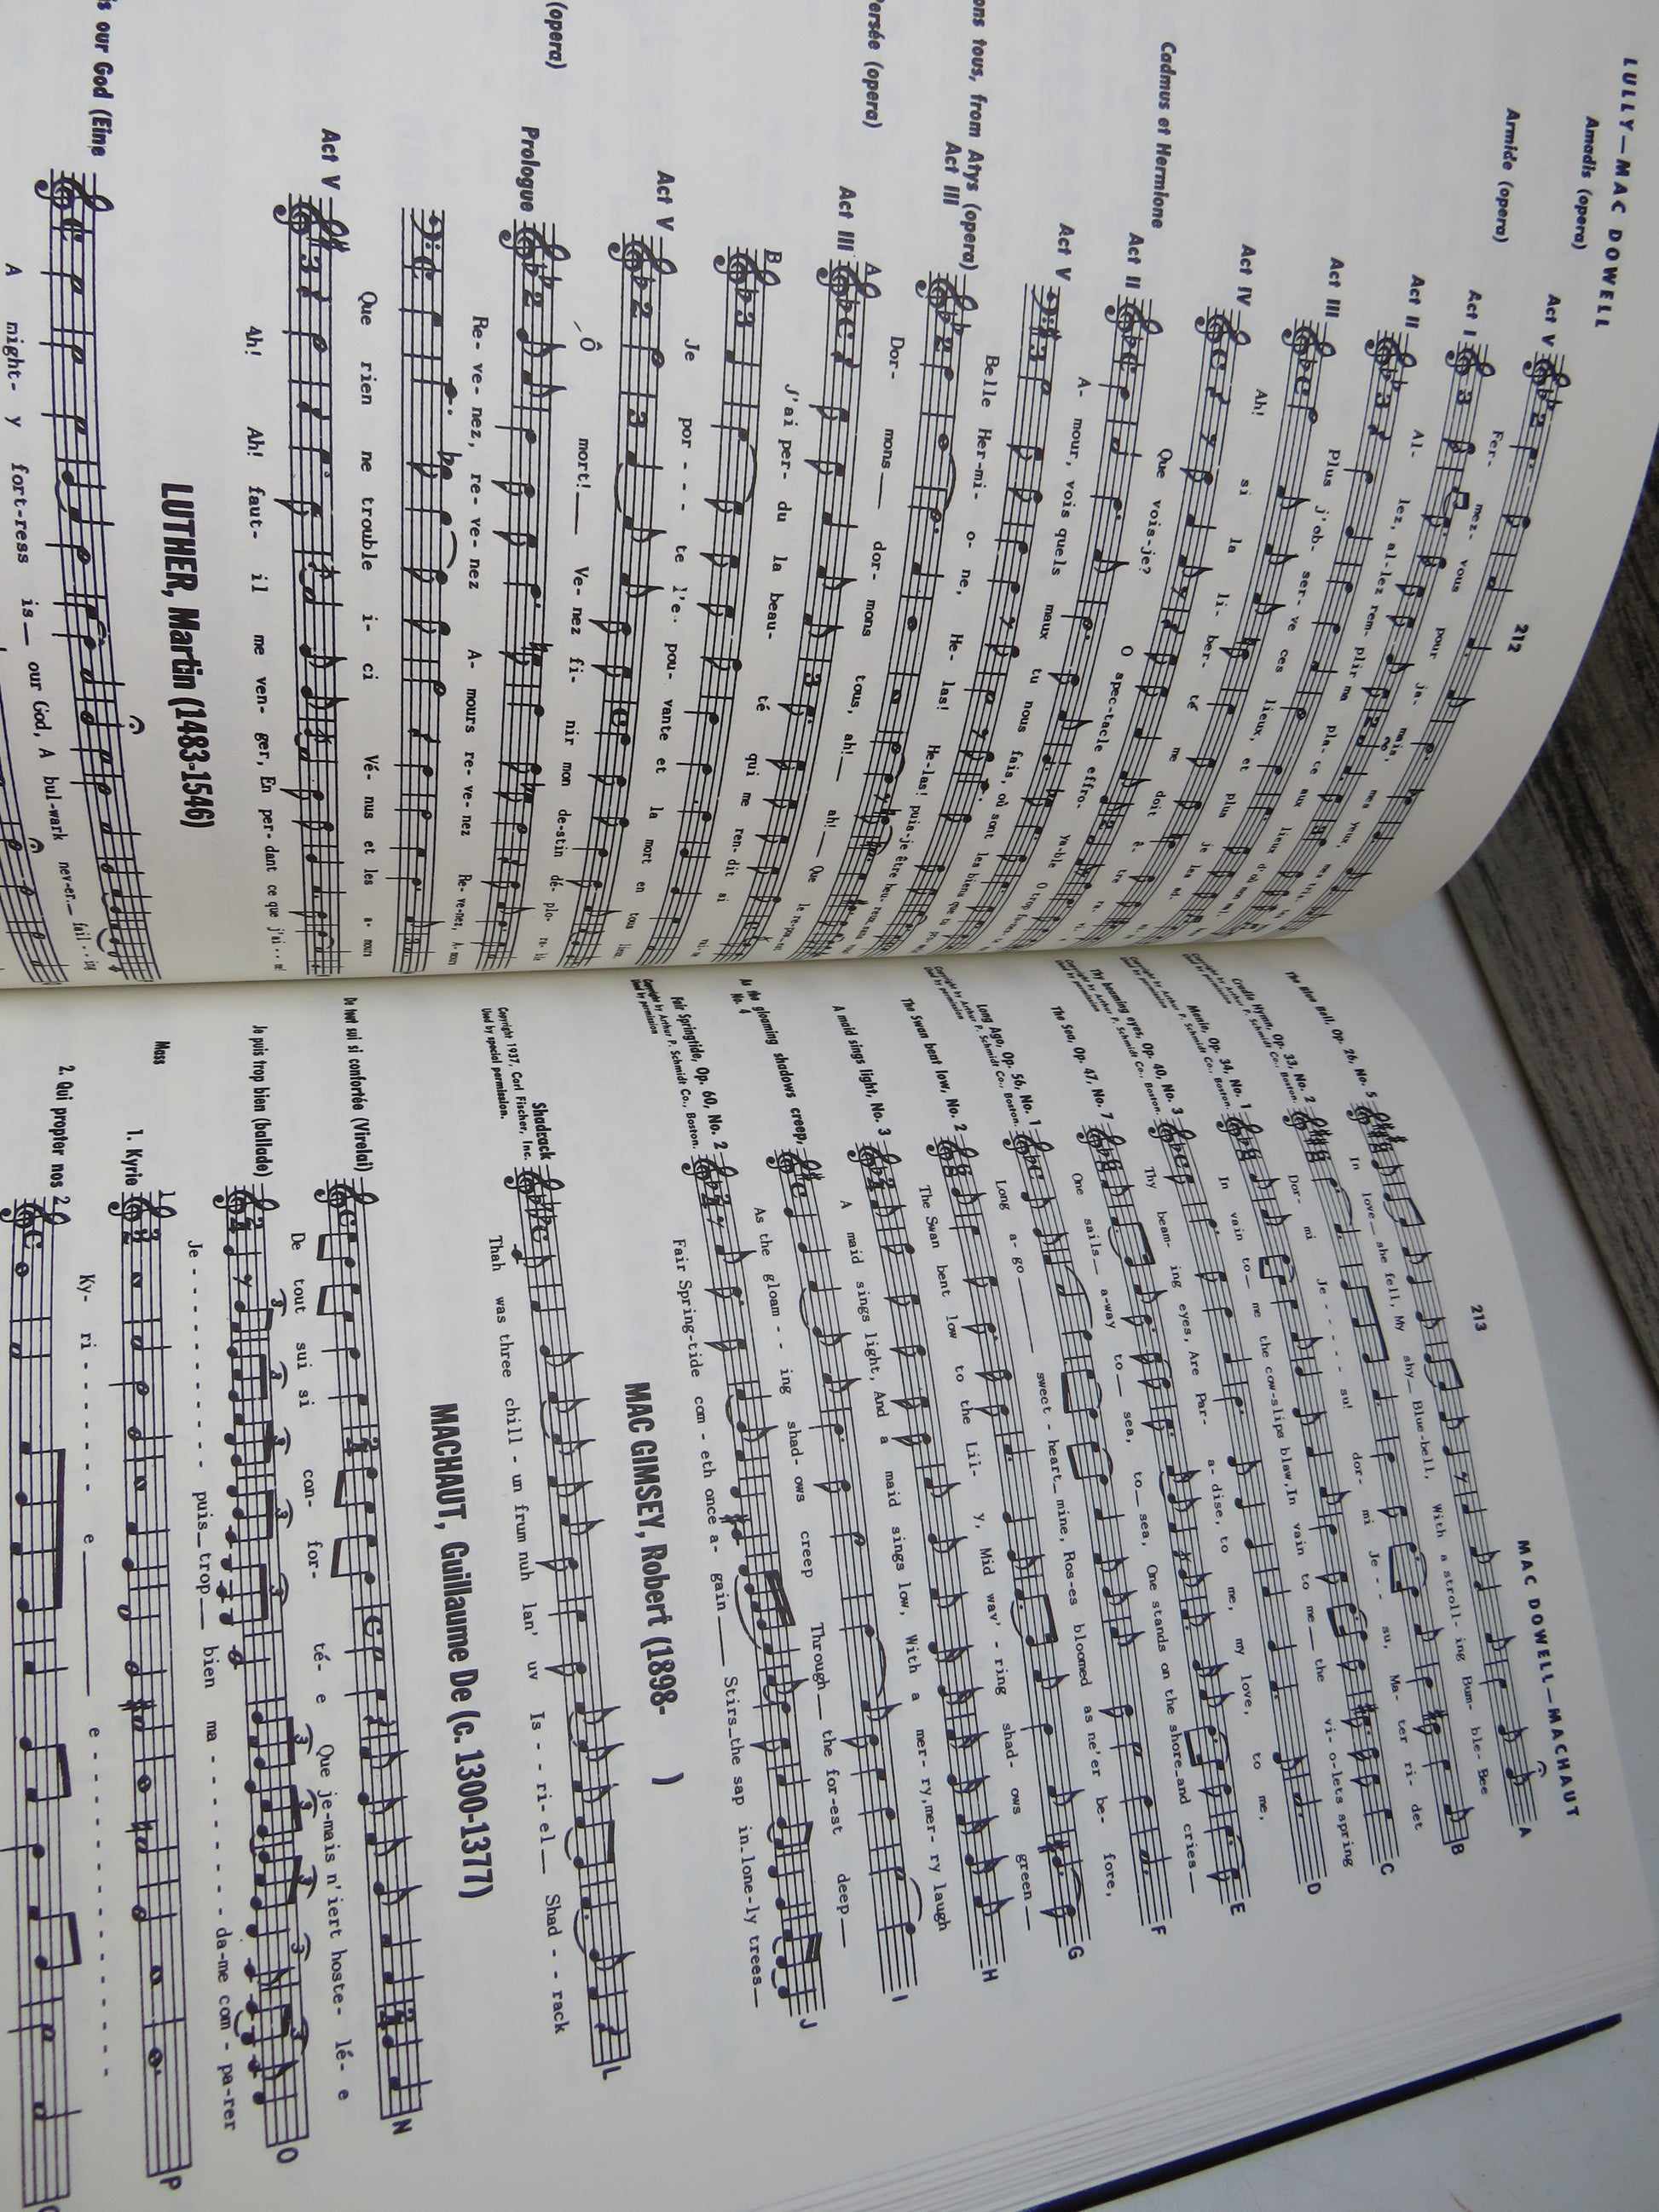 LULLY—MAC DOWELL
212
Amadis (opera)
Act V
Fer- mez- vous pour ja- mais, mes yeux,
Armide (opera)
Act I
Al- lez, al-lez rem- plir ma pla- ce aux lieux d'où mon
Act II
Plus j'ob- ser- ve ces lieux, et plus je les
Act III
Ah! si la li- ber- té me doit ê- tre
Act IV
Que vois-je? O spec-tacle effro- yable
Act V
A- mour, vois quels maux tu nous fais, où sont les biens que tu
Cadmus et Hermione
Act II
Belle Her-mi- o- ne, He- las! He-las! puis-je être heu- reux
Act V
ons tous, from Atys (opera)
Act III
Dor- mons dor- mons tous, ah! ah! Que le
ersée (opera)
Act III
A
J'ai per- du la beau- té qui me ren- dit si
B
Je por - - - te l'e- pou- vante et la mort en tous
Act V
Ô mort! Ve- nez fi- nir mon de-stin dé- plo- ra- ble
(opera)
Prologue
Re- ve- nez, re- ve- nez A- mours re- ve- nez Re- ve-nez,
Que rien ne trouble i- ci Vé- nus et les a- mours
Act V
Ah! Ah! faut- il me ven- ger, En per- dant ce que j'ai
LUTHER, Martin (1483-1546)
s our God (Eine
A might- y fort-ress is our God, A bul-wark nev-er fail - - ing
213
MAC DOWELL—MACHAUT
The Blue Bell, Op. 26, No. 5
A
In love she fell, My shy Blue-bell, With a stroll- ing Bum- ble- Bee
B
Cradle Hymn, Op. 33, No. 2
Copyright by Arthur P. Schmidt Co., Boston.
Used by permission
Dor- mi Je - - - - - su! dor- mi Je - - su, Ma- ter ri- det
C
Menie, Op. 34, No. 1
Copyright by Arthur P. Schmidt Co., Boston.
Used by permission
In vain to me the cow-slips blaw, In vain to me the vi- o-lets spring
D
Thy beaming eyes, Op. 40, No. 3
Copyright by Arthur P. Schmidt Co., Boston.
Used by permission
Thy beam- ing eyes, Are Par- a- dise, to me, my love, to me,
E
The Sea, Op. 47, No. 7
One sails a-way to sea, to sea, One stands on the shore and cries
F
Long Ago, Op. 56, No. 1
Copyright by Arthur P. Schmidt Co., Boston.
Used by permission
Long a- go sweet - heart mine, Ros-es bloomed as ne'er be- fore,
G
The Swan bent low, No. 2
The Swan bent low to the Lil- y, Mid wav' - ring shad- ows green
H
A maid sings light, No. 3
A maid sings light, And a maid sings low, With a mer- ry,mer- ry laugh
I
As the gloaming shadows creep,
No. 4
As the gloam - - ing shad- ows creep Through the for-est deep
J
Fair Springtide, Op. 60, No. 2
Copyright by Arthur P. Schmidt Co., Boston.
Used by permission
Fair Spring-tide com - eth once a- gain Stirs the sap in lone-ly trees
MAC GIMSEY, Robert (1898- )
Shadrack
Copyright 1937, Carl Fischer, Inc.
Used by special permission.
L
Thah was three chill - un frum nuh lan' uv Is - - ri- el Shad - - rack
MACHAUT, Guillaume De (c. 1300-1377)
De tout sui si confortée (Virelai)
N
De tout sui si con- for- té- e Que je-mais n'iert hoste- lé- e
Je puis trop bien (ballade)
O
Je - - - - - - - - - - puis trop bien ma - - - - - - - da-me com - pa-rer
Mass
1. Kyrie 1
P
Ky- ri - - - - - - - e e - - - - - - - - - - - - - -
2. Qui propter nos 2